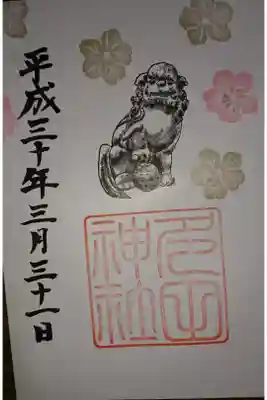 平成三十年三月三十一日
神社